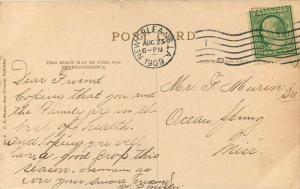 POSTCARD
NEW ORLEANS, LA.
AUG 23
6-PM
1909
THIS SPACE MAY BE USED FOR
CORRESPONDENCE
Dear Friend
hoping that you and
the Family are in the
best of health.
And hoping you will
have a good crop this
season. I remain as
ever your sincere friend
Mr. F.
Ocean Spring
Miss.